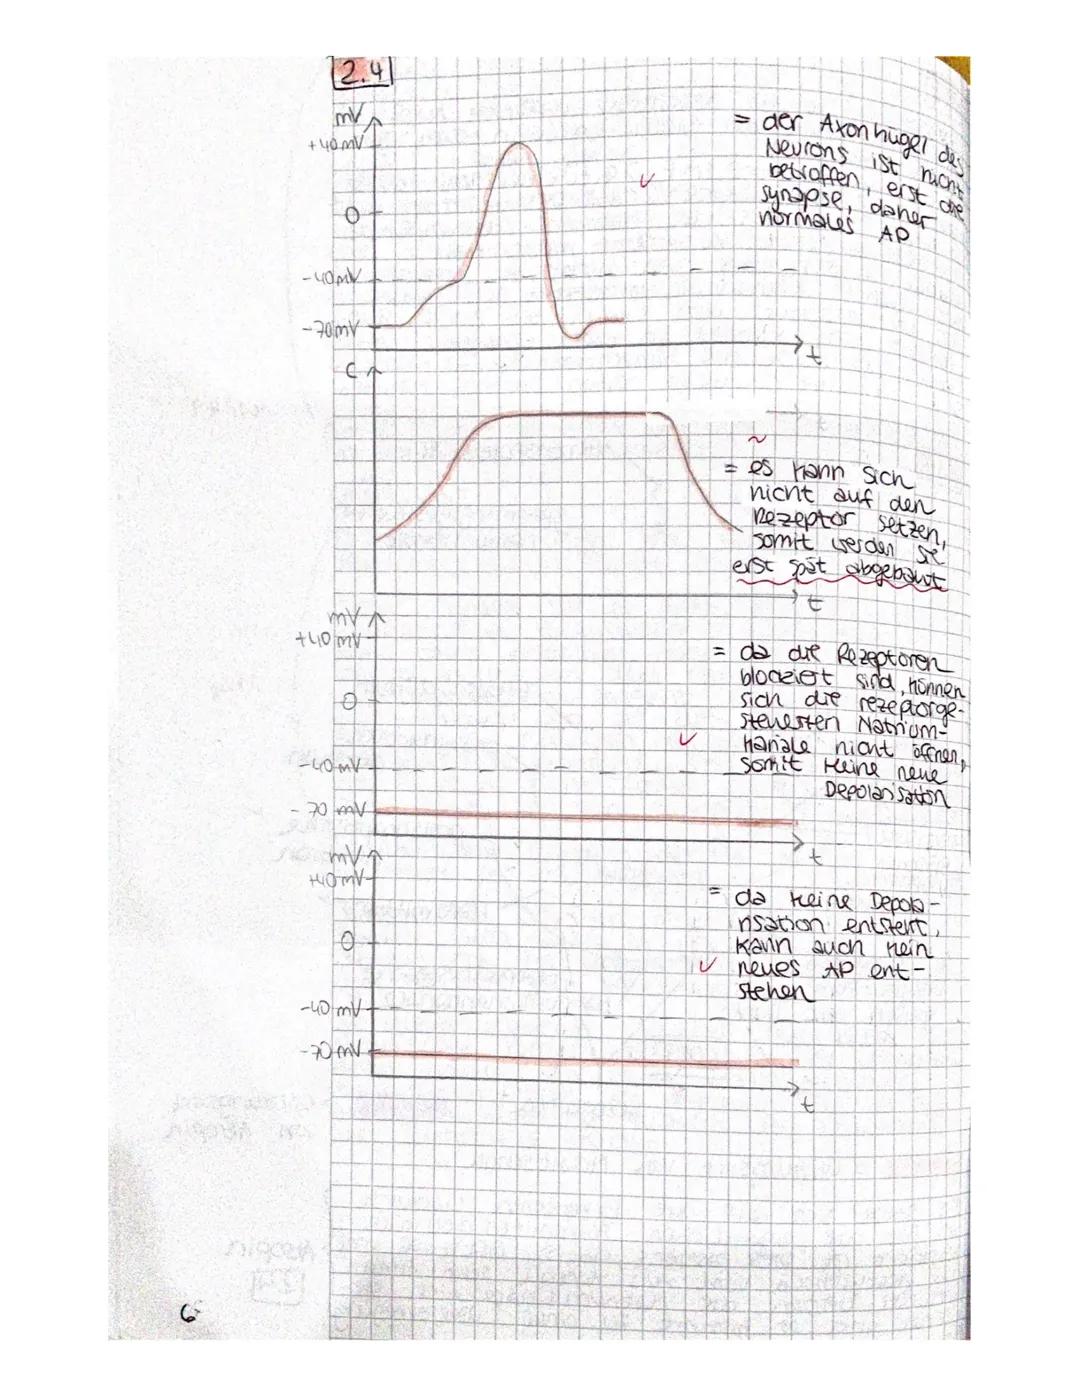 2.4
mV
+40mV
0
-40mV
-70mV
t
= der Axonhügel des
Neurons ist nicht
betroffen, erst die
Synapse, daher
normales AP
C
~
= es kann sich
nicht auf den
Rezeptor setzen,
somit werden sie
erst spät abgebaut
t
mV
+40mV
0
-40mV
-70 mV
t
= da die Rezeptoren
blockiert sind, können
sich die rezeptorge-
steuerten Natrium-
kanäle nicht öffnen,
somit keine neue
Depolarisation
mV
+40mV
0
-40mV
-70mV
t
= da keine Depola-
risation entsteht,
kann auch kein
neues AP ent-
stehen
6